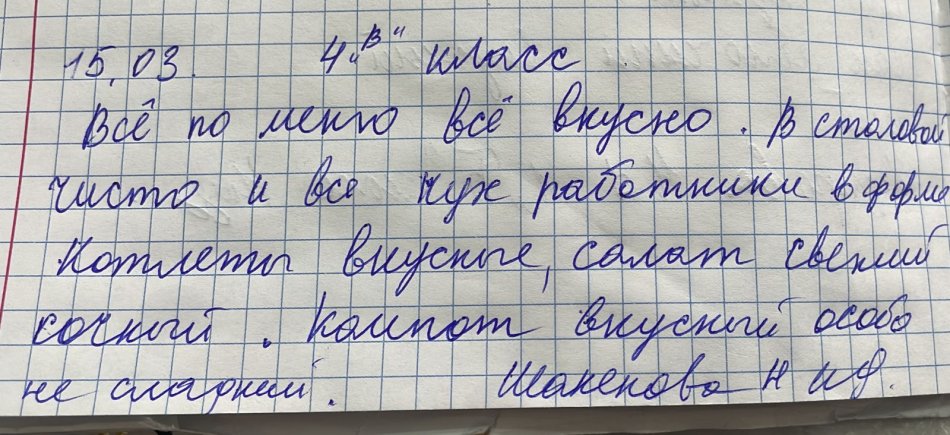 15.03. 4 "В" класс
Всё по меню всё вкусно. В столовой
чисто и все кух работники в форме
Котлеты вкусные, салат свежий
сочный. Компот вкусный особо
не сладкий. Шакенова Н